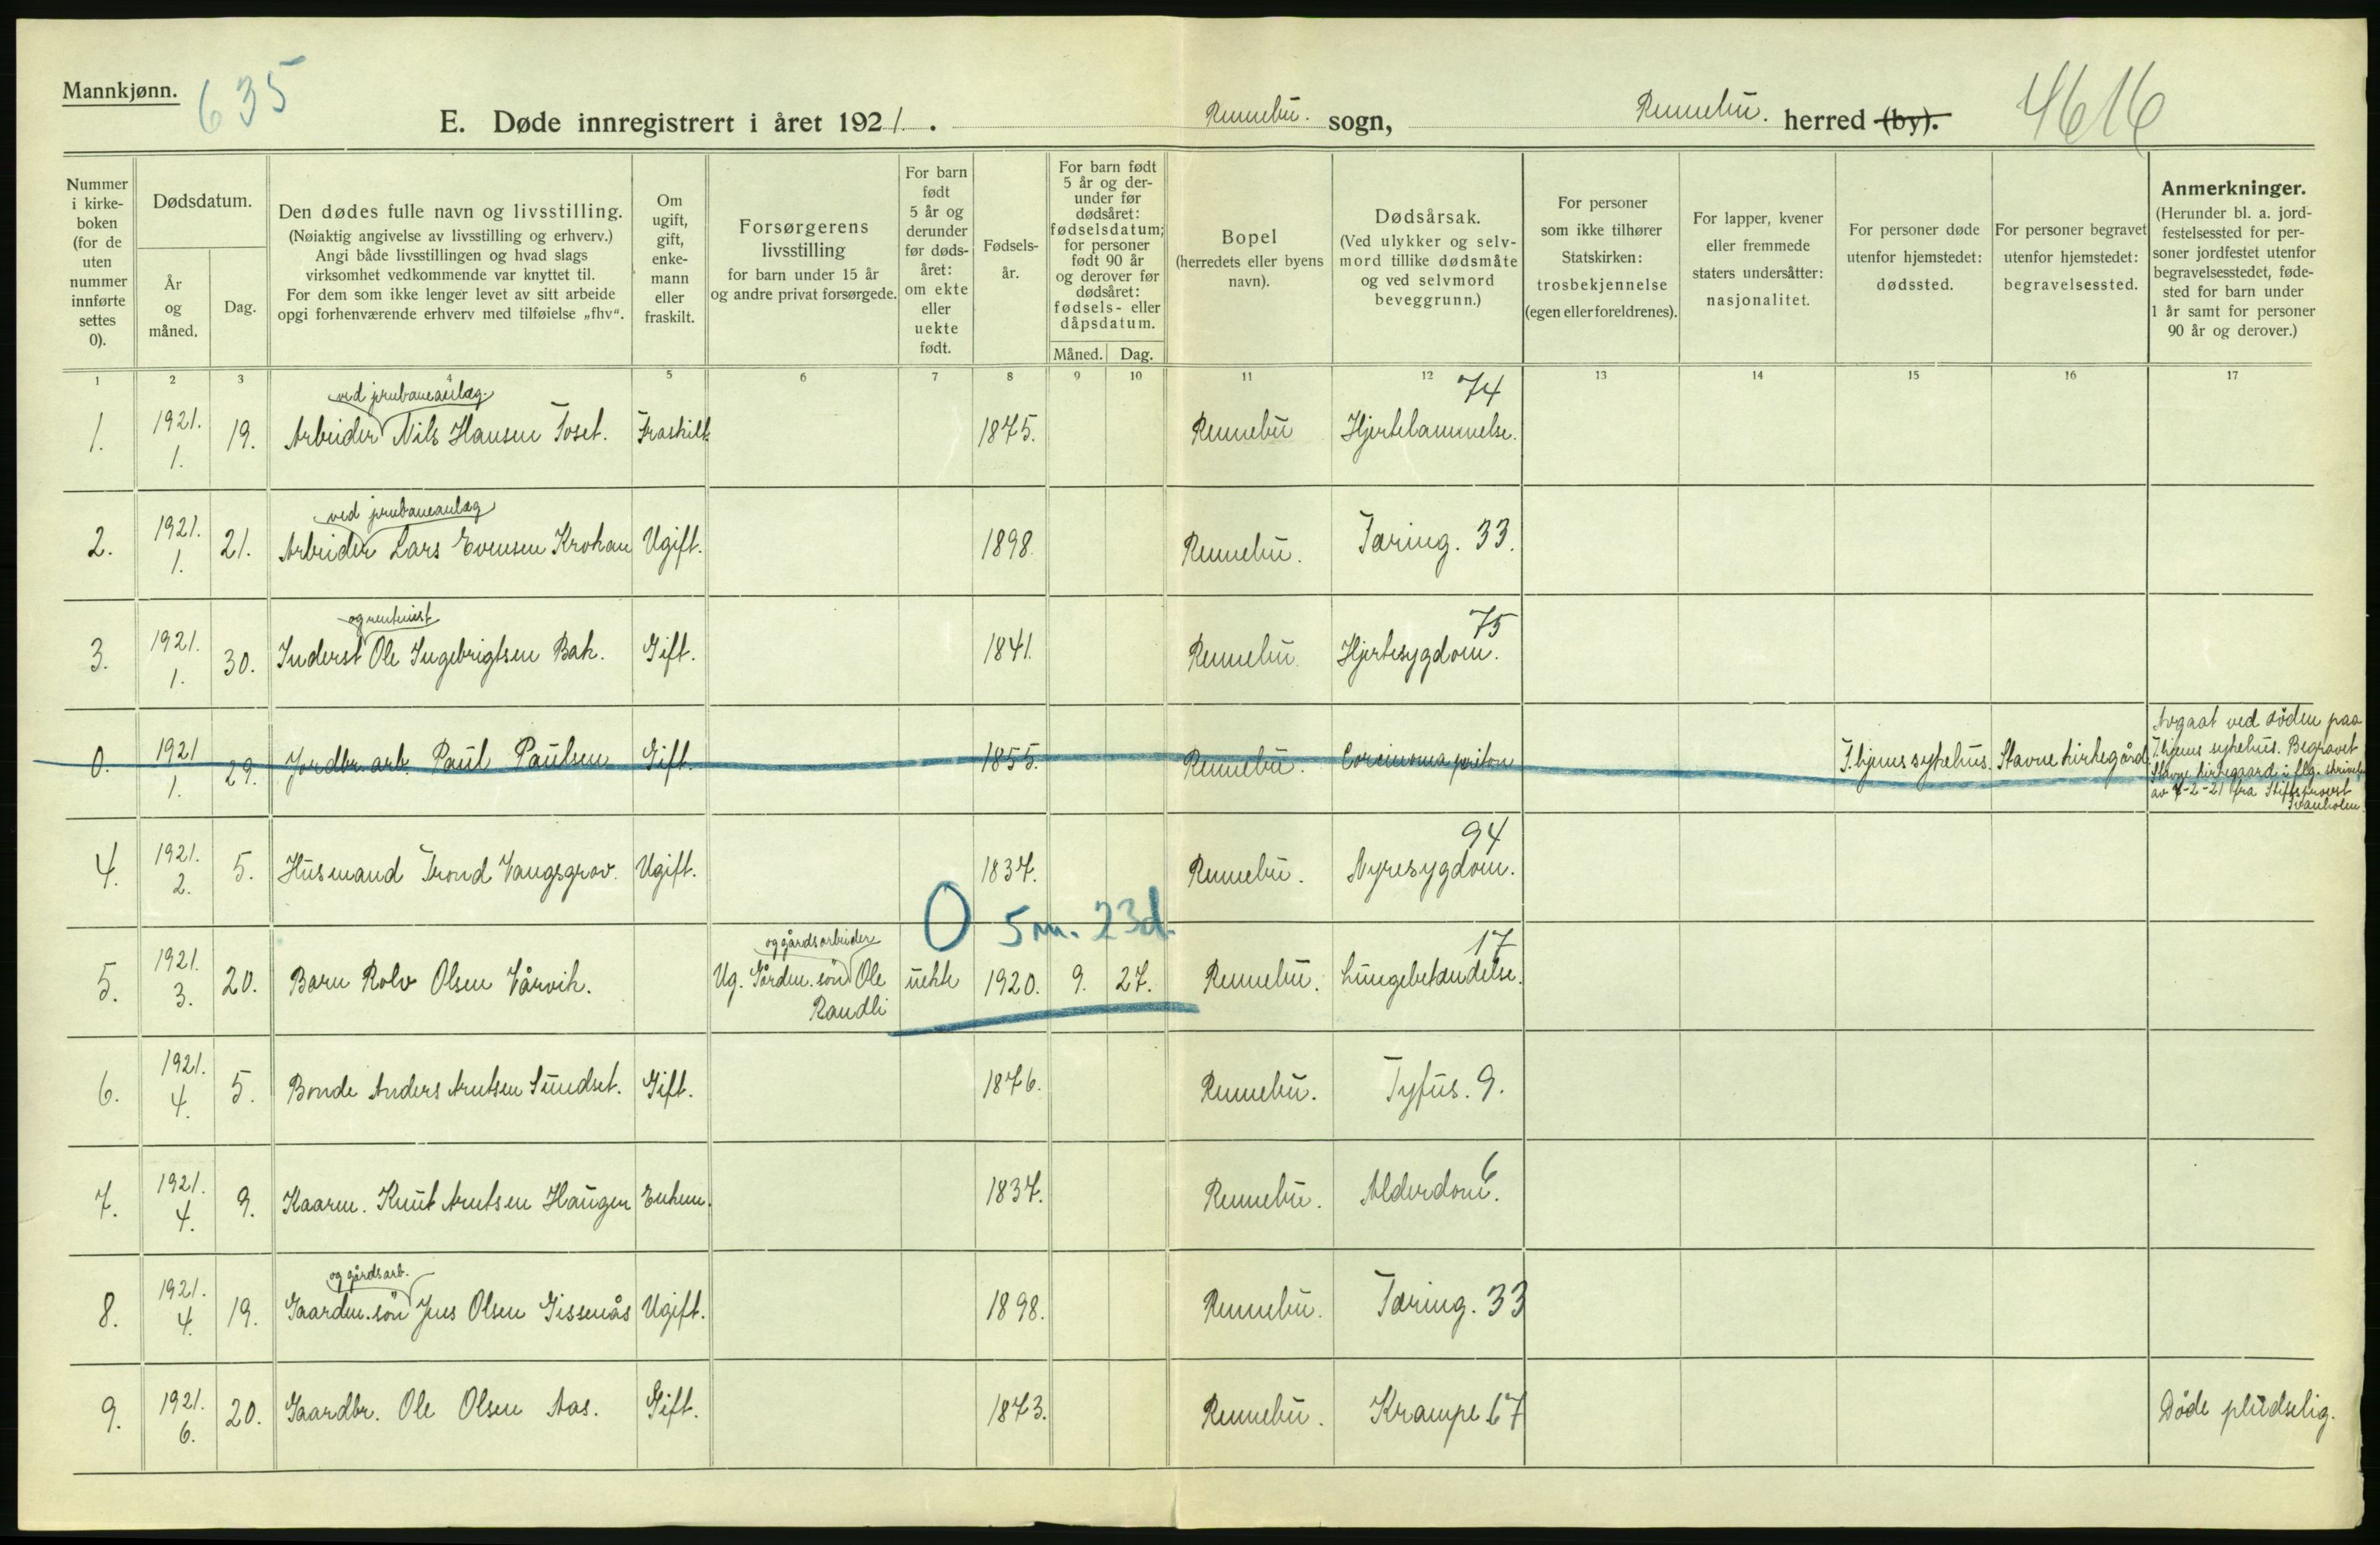 Mannkjønn.
635
E. Døde innregistrert i året 1921. Rennebu. sogn, Rennebu. herred (by).
4616
Nummer i kirke-boken (for de uten nummer innførte settes 0).
Dødsdatum.
År og måned.
Dag.
Den dødes fulle navn og livsstilling.
(Nøiaktig angivelse av livsstilling og erhverv.)
Angi både livsstillingen og hvad slags
virksomhet vedkommende var knyttet til.
For dem som ikke lenger levet av sitt arbeide
opgi forhenværende erhverv med tilføielse „fhv“.
Om ugift, gift, enke-mann eller fraskilt.
Forsørgerens livsstilling
for barn under 15 år
og andre privat forsørgede.
For barn født 5 år og derunder før døds-året: om ekte eller uekte født.
Fødsels-år.
For barn født 5 år og der-under før dødsåret: fødselsdatum; for personer født 90 år og derover før dødsåret: fødsels- eller dåpsdatum.
Måned. Dag.
Bopel
(herredets eller byens navn).
Dødsårsak.
(Ved ulykker og selv-mord tillike dødsmåte og ved selvmord beveggrunn.)
For personer som ikke tilhører Statskirken: trosbekjennelse (egen eller foreldrenes).
For lapper, kvener eller fremmede staters undersåtter: nasjonalitet.
For personer døde utenfor hjemstedet: dødssted.
For personer begravet utenfor hjemstedet: begravelsessted.
Anmerkninger.
(Herunder bl. a. jord-festelsessted for per-soner jordfestet utenfor begravelsesstedet, føde-sted for barn under 1 år samt for personer 90 år og derover.)
1 2 3 4 5 6 7 8 9 10 11 12 13 14 15 16 17
ved jernbaneanlæg. 74
1. 1921. 1. 19. Arbeider Nils Hansen Toset. Fraskilt. 1875. Rennebu Hjertelammelse.
ved jernbaneanlæg
2. 1921. 1. 21. Arbeider Lars Evensen Krokan Ugift. 1898. Rennebu. Tæring. 33.
og rentenist 75
3. 1921. 1. 30. Inderst Ole Ingebrigtsen Bak. Gift. 1841. Rennebu Hjertesygdom.
0. 1921 1. 29. Jordbr. arb. Paul Paulsen Gift. 1855. Rennebu. Corcinoma periton T.hjems sykehus. Stavne kirkegård
Avgaat ved døden paa
T.hjems sykehus. Begravet
Stavne kirkegaard i flg. skrivelse
av 7-2-21 fra Stiftsprovst
94
4. 1921. 2. 5. Husmand Trond Vangsgrav. Ugift. 1837. Rennebu. Nyresygdom.
0 5 m. 23 d.
og gårdsarbeider 17
5. 1921. 3. 20. Barn Rolv Olsen Vårvik. Ug. Gårdm. søn Ole uekte 1920. 9. 27. Rennebu. Lungebetændelse.
Randli
6. 1921. 4. 5. Bonde Anders Arntsen Sundset. Gift. 1876. Rennebu. Tyfus. 9.
6
7. 1921. 4. 9. Kaarm. Knut Arntsen Haugen Enkem. 1837. Rennebu. Alderdom.
og gårdsarb.
8. 1921. 4. 19. Gaardm. søn Jens Olsen Gissenås Ugift. 1898. Rennebu. Tæring. 33
9. 1921. 6. 20. Gaardbr. Ole Olsen Aas. Gift. 1873. Rennebu. Krampe 67 Døde pludselig.